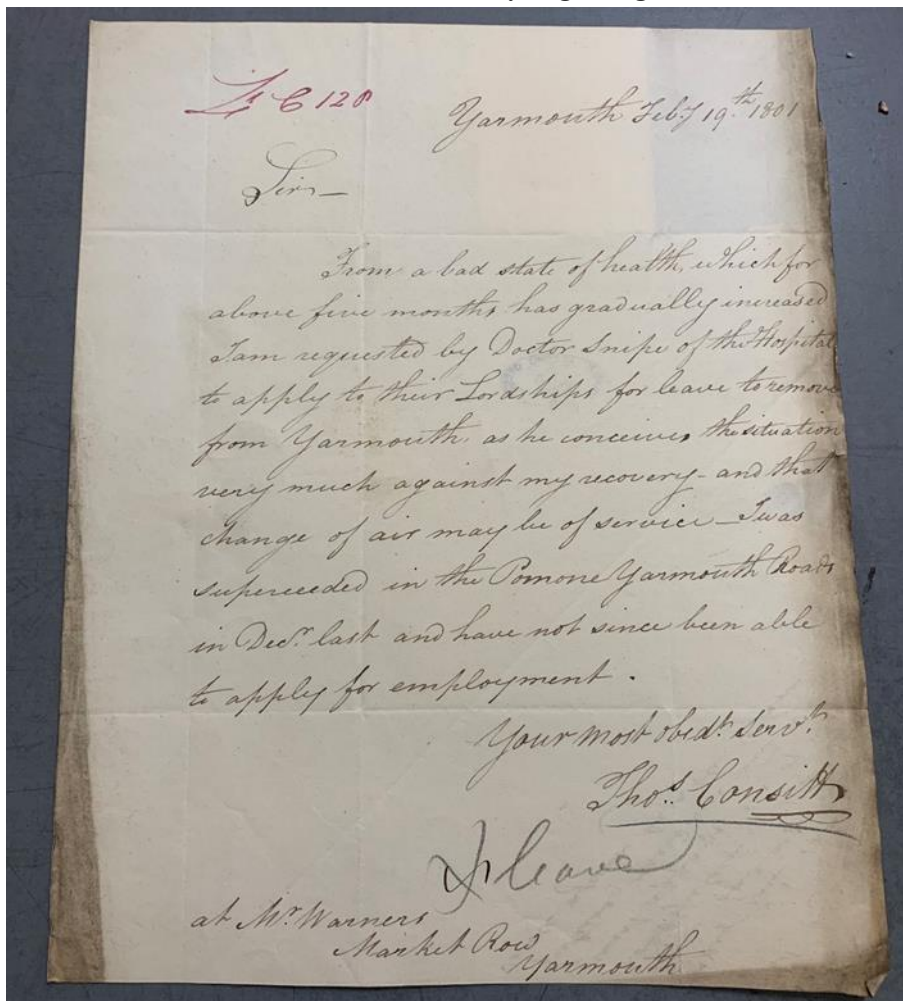 Lt C 128
Yarmouth Feby 19th 1801
Sir—
From a bad state of health, which for
above five months has gradually increased
I am requested by Doctor Snipe of the Hospital
to apply to their Lordships for leave to remove
from Yarmouth, as he conceives the situation
very much against my recovery - and that
change of air may be of service — I was
superceeded in the Pomone Yarmouth Roads
in Decr. last and have not since been able
to apply for employment.
Your most obedt. Servt.
Thos. Consitt
leave
at Mr. Warners
Market Row
Yarmouth